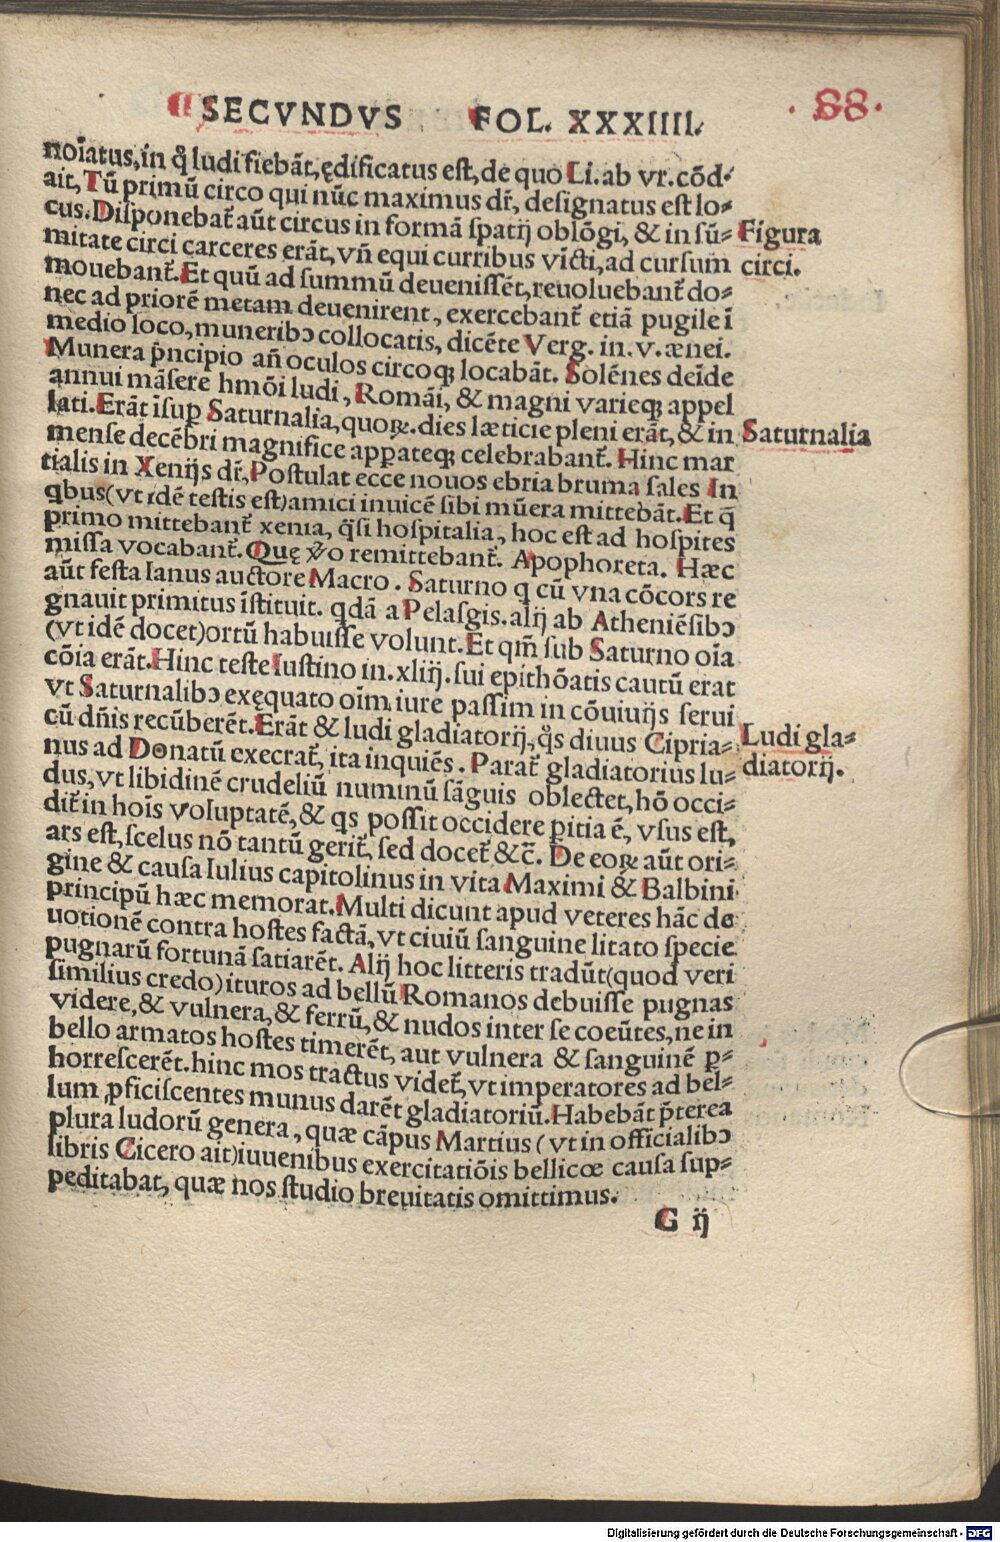 SECVNDVS FOL. XXXIIII.
·88·
noīatus, in q̄ ludi fiebāt, ędificatus est, de quo Li. ab vr. cōd⸗
ait, Tū primū circo qui nūc maximus dr̄, designatus est lo⸗
cus. Disponebat᷑ aūt circus in formā spatij oblōgi, & in sū⸗
Figura
mitate circi carceres erāt, vn̄ equi curribus vicṫi, ad cursum
circi.
mouebant᷑. Et quū ad summū deuenissēt, reuoluebant᷑ do⸗
nec ad priorē metam deuenirent, exercebant᷑ etiā pugile ī
medio loco, muneribꝫ collocatis, dicēte Verg. in. v. ænei.
Munera p̄ncipio añ oculos circoqꝫ locabāt. Solēnes deīde
annui māsere hmōi ludi, Romāi, & magni varieqꝫ appel
lati. Erāt īsup Saturnalia, quoꝝ. dies læticie pleni erāt, & in
Saturnalia
mense decēbri magnifice apꝑateqꝫ celebrabant᷑. Hinc mar
tialis in Xenijs dr̄, Postulat ecce nouos ebria bruma sales In
qbus (vt idē testis est) amici inuicē sibi mūera mittebāt. Et q̄
primo mittebant᷑ xenia, q̄si hospitalia, hoc est ad hospites
missa vocabant᷑. Quę v̊o remittebant᷑. Apophoreta. Hæc
aūt festa Ianus auctore Macro. Saturno q cū vna cōcors re
gnauit primitus īstituit. qdā a Pelasgis. alij ab Atheniēsibꝫ
(vt idē docet) ortū habuisse volunt. Et qm̄ sub Saturno oīa
cōia erāt. Hinc teste Iustino in. xliij. sui epithōatis cautū erat
vt Saturnalibꝫ exęquato oīm iure passim in cōuiuijs serui
cū dn̄is recūberēt. Erāt & ludi gladiatorij, q̄s diuus Cipria⸗
Ludi gla⸗
nus ad Donatū execrat᷑, ita inquiēs. Parat᷑ gladiatorius lu⸗
diatorij.
dus, vt libidinē crudeliū numinū sāguis oblectet, hō occi⸗
dit᷑ in hoīs voluptatē, & qs possit occidere ꝑitia ē, vsus est,
ars est, scelus nō tantū gerit᷑, sed docet᷑ &c̄. De eoꝝ aūt ori⸗
gine & causa Iulius capitolinus in vita Maximi & Balbini
principū hæc memorat. Multi dicunt apud veteres hāc de
uotionē contra hostes factā, vt ciuiū sanguine litato specie
pugnarū fortunā satiarēt. Alij hoc litteris tradūt (quod veri
similius credo) ituros ad bellū Romanos debuisse pugnas
videre, & vulnera, & ferrū, & nudos inter se coeūtes, ne in
bello armatos hostes timerēt, aut vulnera & sanguinē ꝑ⸗
horrescerēt. hinc mos tractus videt᷑, vt imperatores ad bel⸗
lum ꝓficiscentes munus darēt gladiatoriū. Habebāt p̄terea
plura ludorū genera, quæ cāpus Martius (vt in officialibꝫ
libris Cicero ait) iuuenibus exercitatiōis bellicœ causa sup⸗
peditabat, quæ nos studio breuitatis omittimus.
G ij
Digitalisierung gefördert durch die Deutsche Forschungsgemeinschaft - DFG